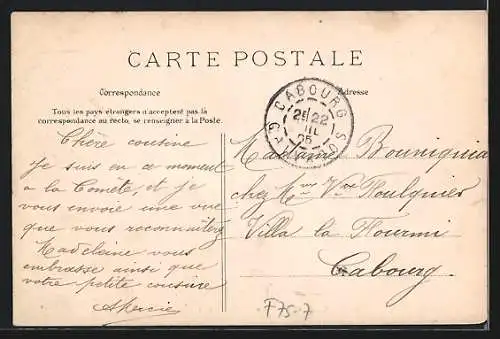 CARTE POSTALE
Correspondance
Adresse
Tous les pays étrangers n'acceptent pas la
correspondance au recto, se renseigner à la Poste.
CABOURG
22
CALVADOS
Chère cousine
Je suis en ce moment
à la Comète, et je
vous envoie une vue
que vous reconnaîtrez
Madeleine vous
embrasse ainsi que
votre petite cousine
Madame
chez Mme Vve
Villa la Fourmi
Cabourg.
F75-7